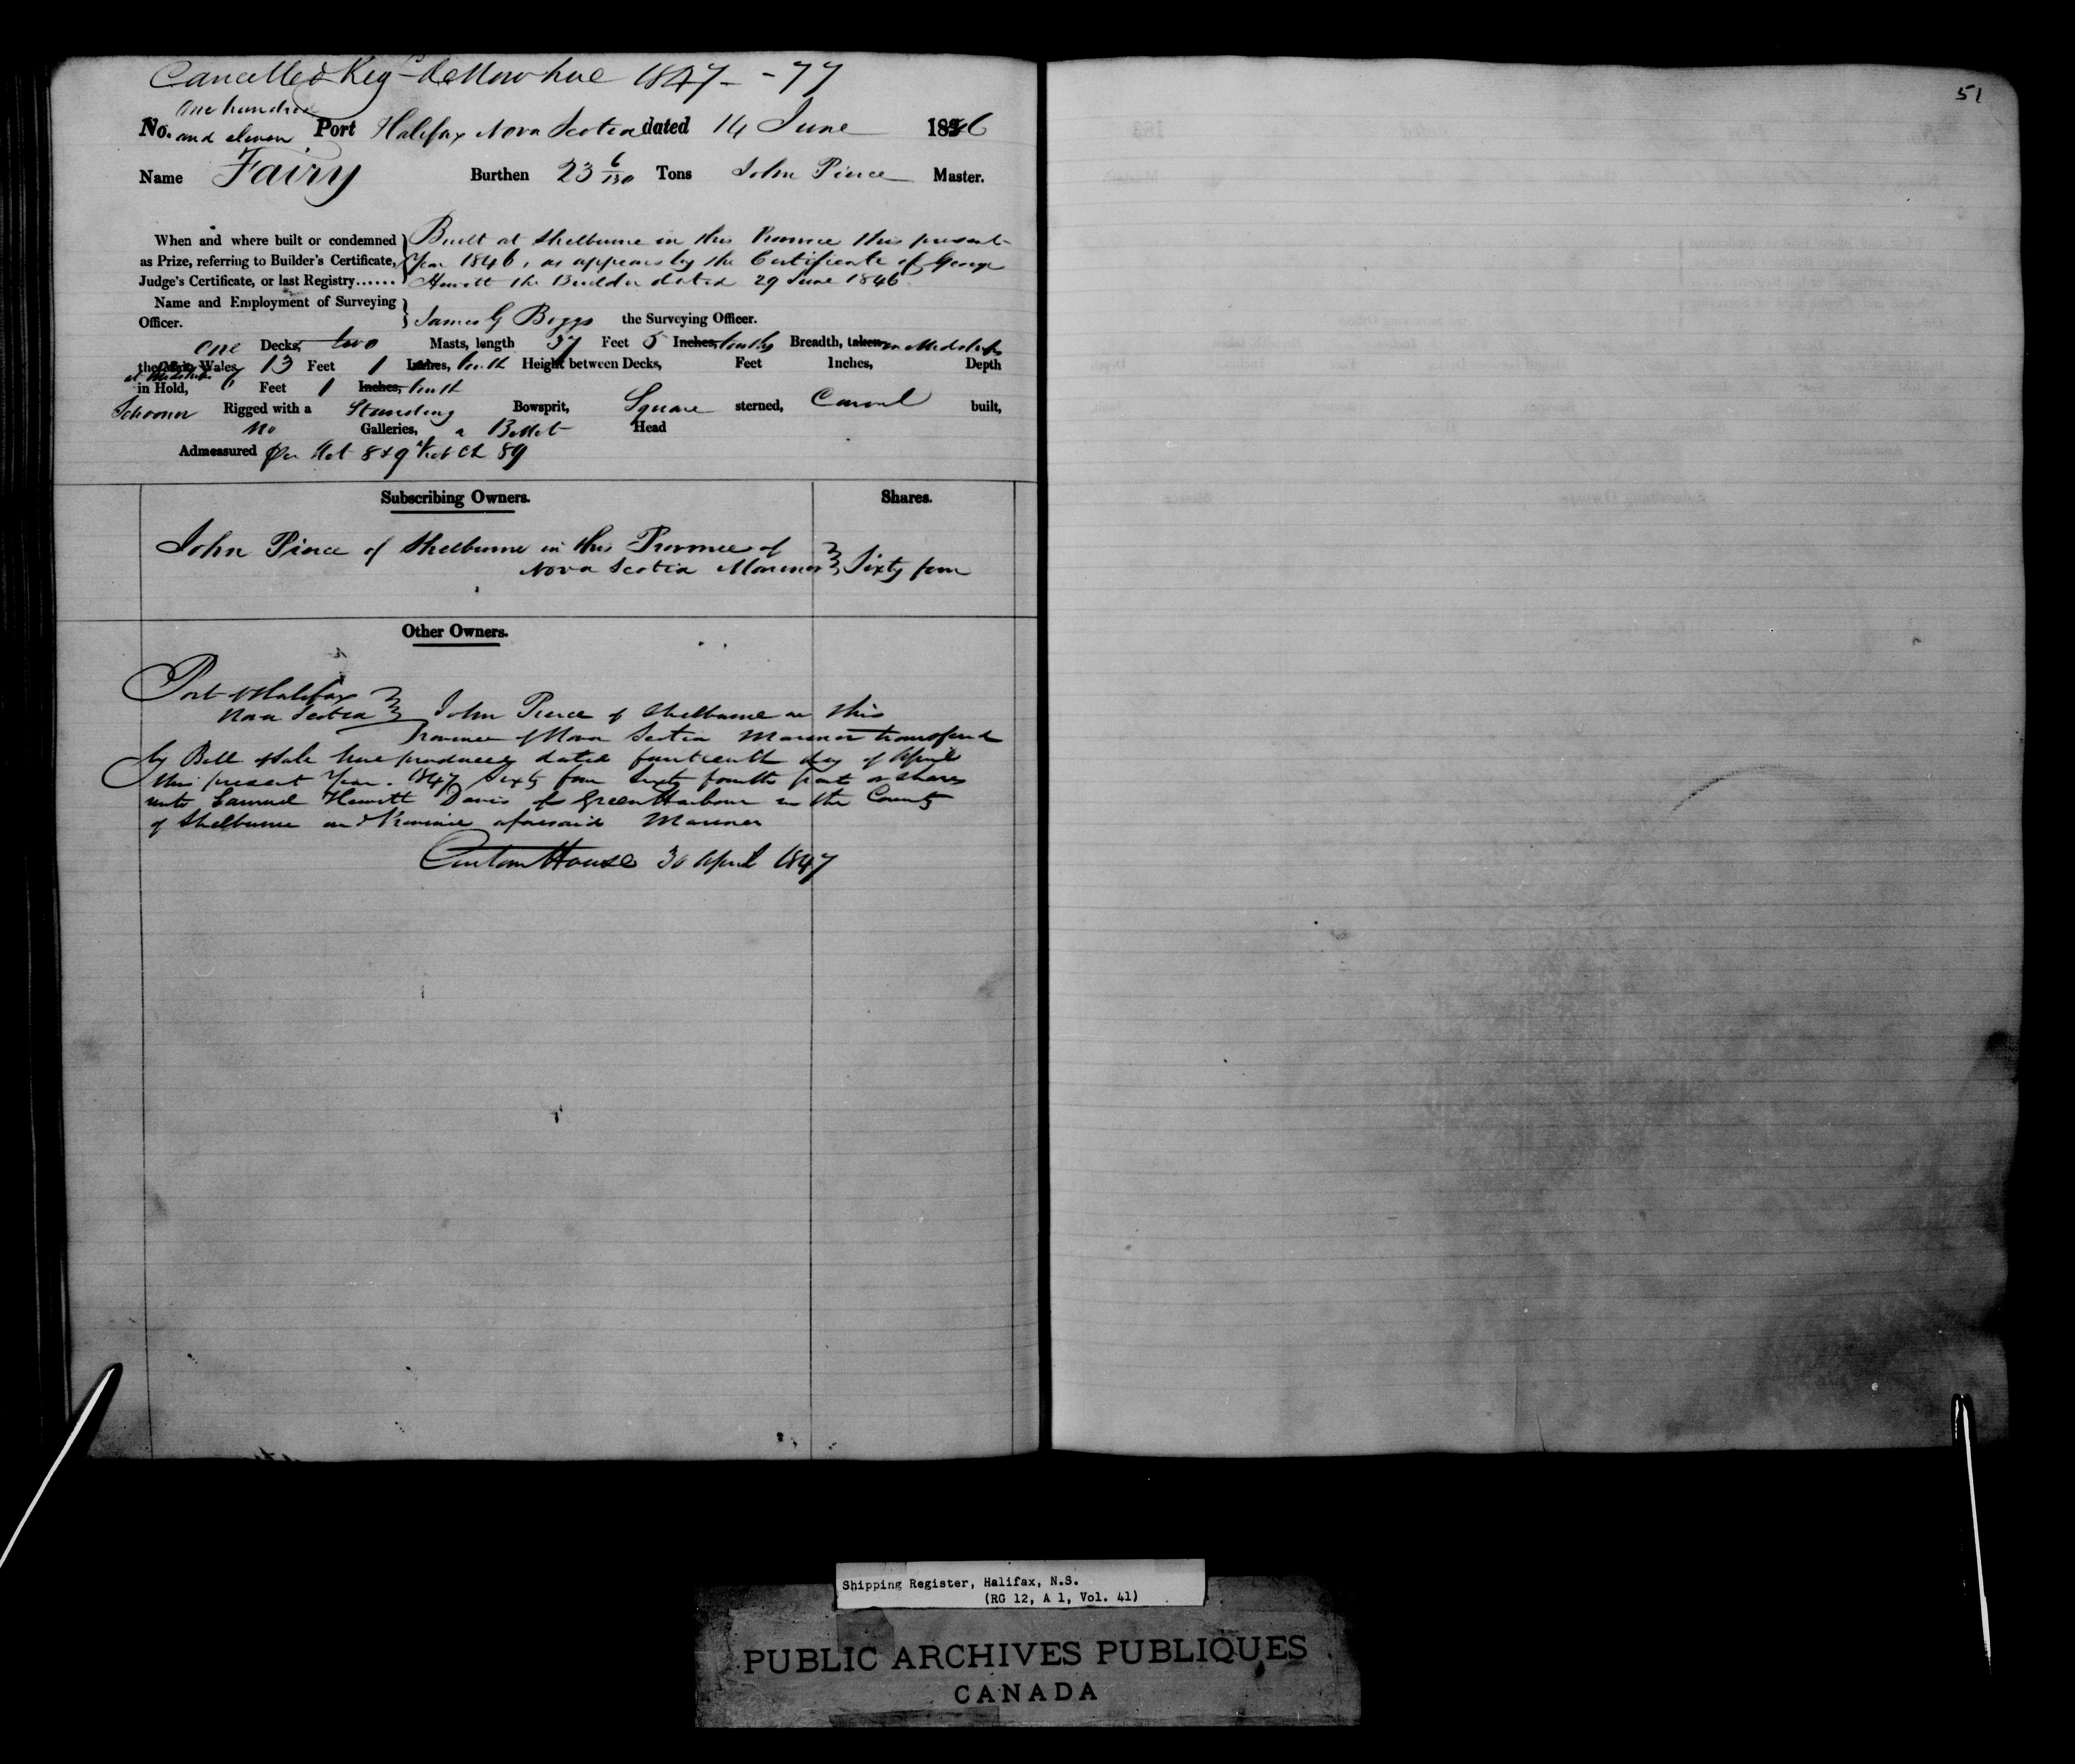 Cancelled & Reg de Novo here 1847 - 77
51
One hundred
No. and eleven Port Halifax Nova Scotia dated 14 June 1846
Name Fairy Burthen 23 6/130 Tons John Pierce Master.
When and where built or condemned } Built at Shelburne in this Province this present
as Prize, referring to Builder's Certificate, Year 1846, as appears by the Certificate of George
Judge's Certificate, or last Registry...... Hewitt the Builder dated 29 June 1846
Name and Employment of Surveying
Officer. } James G Boggs the Surveying Officer.
One Decks, two Masts, length 37 Feet 5 Inches, tenths Breadth, taken in Midships
the Wales, 13 Feet 1 Inches, tenth Height between Decks, Feet Inches, Depth
at Midships
in Hold, Feet 1 Inches, tenth
Schooner Rigged with a Standing Bowsprit, Square sterned, Carvel built,
no Galleries, a Billet Head
Admeasured Per Act 8 & 9 Vict Ch 89
Subscribing Owners. Shares.
John Pierce of Shelburne in this Province of
Nova Scotia Mariner } Sixty four
Other Owners.
Port of Halifax
Nova Scotia } John Pierce of Shelburne in this
Province of Nova Scotia Mariner transferred
by Bill of Sale here produced dated fourteenth day of April
this present Year 1847 Sixty four Sixty fourth part or shares
unto Samuel Hewitt Davis of Green Harbour in the County
of Shelburne and Province aforesaid Mariner
Custom House 30 April 1847
Shipping Register, Halifax, N.S.
(RG 12, A 1, Vol. 41)
PUBLIC ARCHIVES PUBLIQUES
CANADA